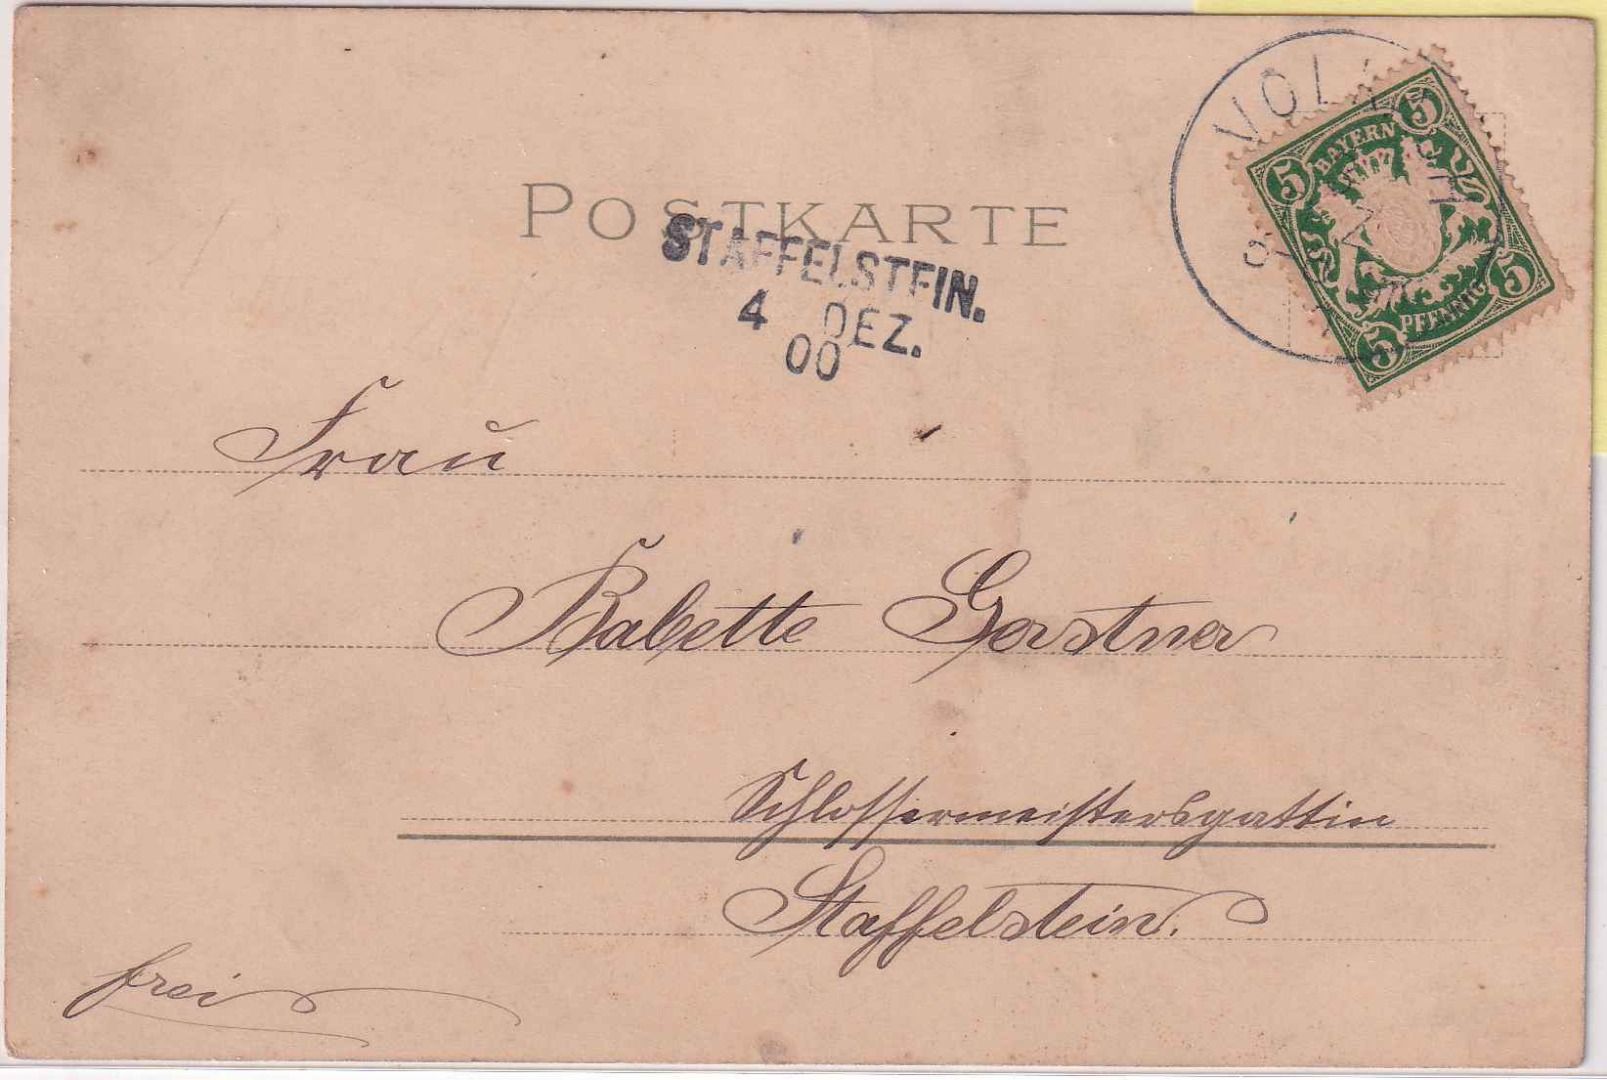 POSTKARTE
STAFFELSTEIN.
4 DEZ.
00
5 BAYERN 5
5 PFENNIG 5
Frau
Babette Gerstner
Schlossermeistersgattin
Staffelstein.
frei